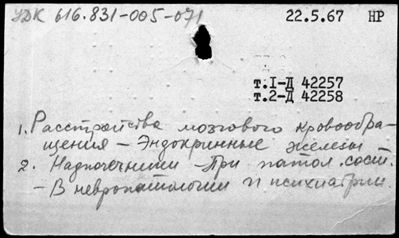 УДК 616.831-005-071
22.5.67 НР
т.I-Д 42257
т.2-Д 42258
1. Расстройства мозгового кровообра-
щения - Эндокринные железы
2. Надпочечники - При патол. сост.
- В невропатологии и психиатрии.